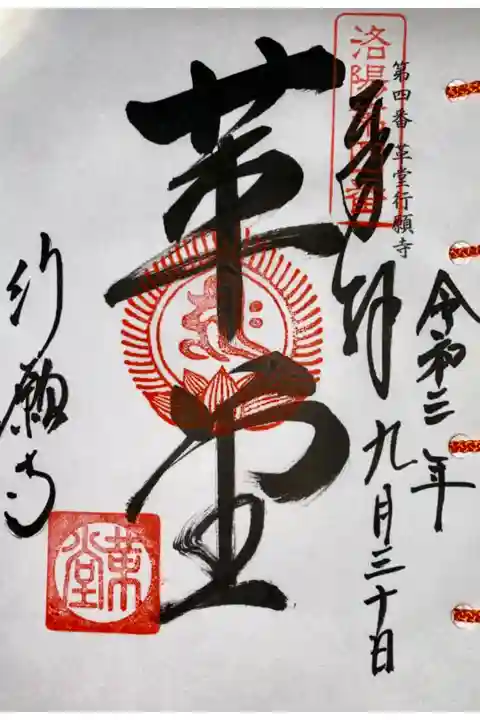 第四番 革堂行願寺
令和三年
九月三十日
洛陽第四番
奉拝
革堂
行願寺
革堂